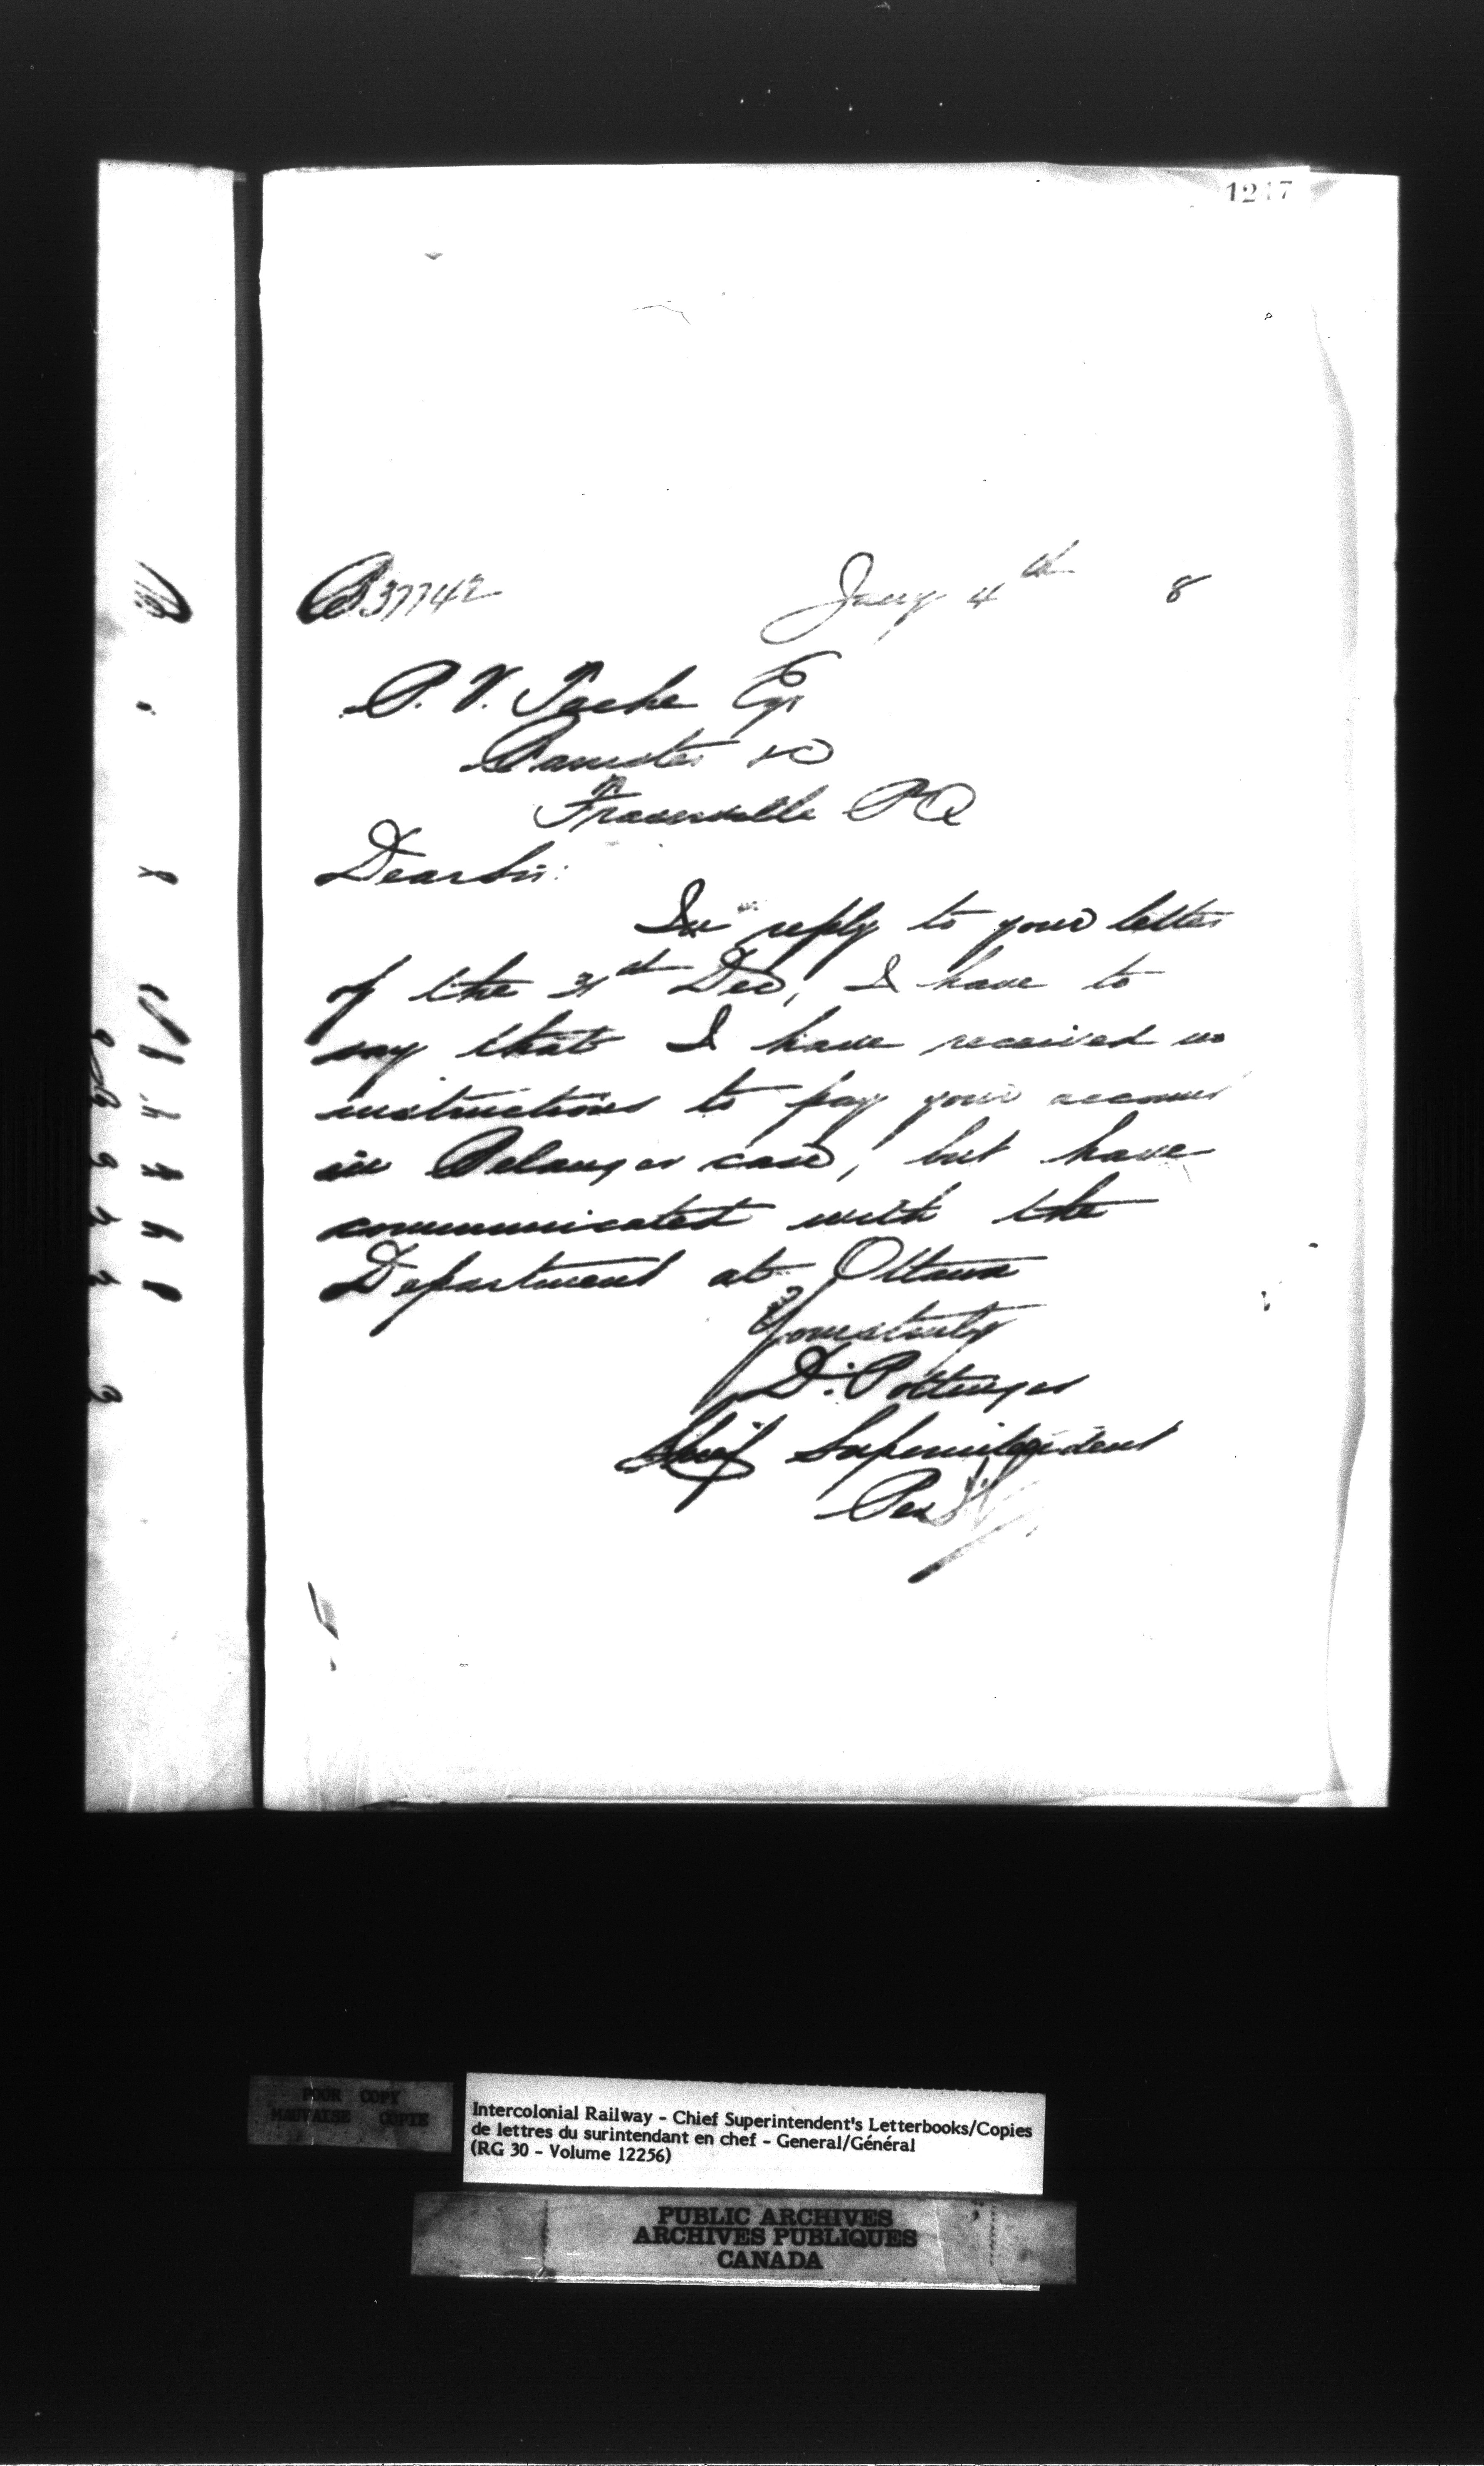 37742 Jany 4th 8
P. V. Tache Esq
Barrister &c
Fraserville PQ
Dear Sir:
In reply to your letter
of the 31st Dec, I have to
say that I have received no
instructions to pay your account
in Belanger case, but have
communicated with the
Department at Ottawa
Yours truly
D. Pottinger
Chief Superintendent
Per
POOR COPY
MAUVAISE COPIE
Intercolonial Railway - Chief Superintendent's Letterbooks/Copies
de lettres du surintendant en chef - General/Général
(RG 30 - Volume 12256)
PUBLIC ARCHIVES
ARCHIVES PUBLIQUES
CANADA